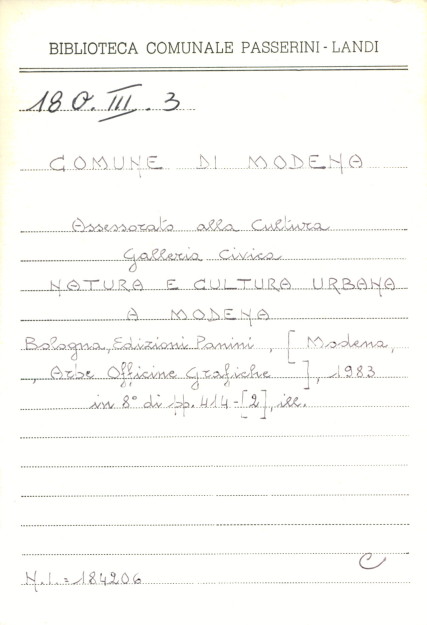 BIBLIOTECA COMUNALE PASSERINI-LANDI
18 O. III. 3
COMUNE DI MODENA
Assessorato alla Cultura
Galleria Civica
NATURA E CULTURA URBANA
A MODENA
Bologna, Edizioni Panini, [Modena,
, Arbe Officine Grafiche ], 1983
in 8° di pp. 414-[2], ill.
C
N.I.=184206